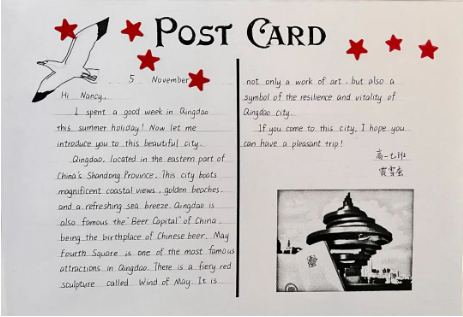 POST CARD
5 November
Hi Nancy,
I spent a good week in Qingdao
this summer holiday! Now let me
introduce you to this beautiful city.
Qingdao, located in the eastern part of
China's Shandong Province. This city boats
magnificent coastal views, golden beaches
and a refreshing sea breeze. Qingdao is
also famous the "Beer Capital" of China
being the birthplace of Chinese beer. May
Fourth Square is one of the most famous
attractions in Qingdao. There is a fiery red
sculpture called Wind of May. It is
not only a work of art, but also a
symbol of the resilience and vitality of
Qingdao city.
If you come to this city, I hope you
can have a pleasant trip!
高一